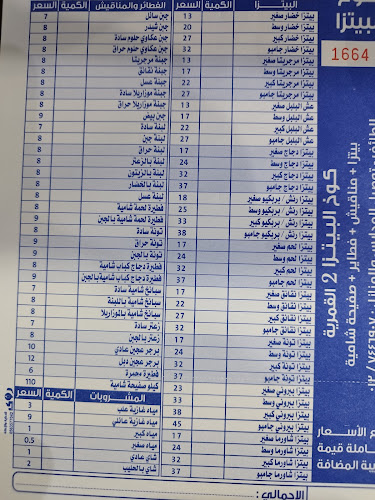 البيتزا الكمية السعر
بيتزا خضار صغير 13
بيتزا خضار وسط 20
بيتزا خضار كبير 27
بيتزا خضار جامبو 32
بيتزا مرجريتا صغير 11
بيتزا مرجريتا وسط 17
بيتزا مرجريتا كبير
بيتزا مرجريتا جامبو
عش البلبل صغير
عش البلبل وسط 17
عش البلبل كبير
عش البلبل جامبو
بيتزا دجاج صغير 17
بيتزا دجاج وسط 24
بيتزا دجاج كبير 32
بيتزا دجاج جامبو 37
بيتزا رنش / بربكيو صغير 18
بيتزا رنش / بربكيو وسط 25
بيتزا رنش / بربكيو كبير 33
بيتزا رنش / بربكيو جامبو 38
بيتزا لحم صغير 17
بيتزا لحم وسط 24
بيتزا لحم كبير 32
بيتزا لحم جامبو 37
بيتزا نقانق صغير 17
بيتزا نقانق وسط 22
بيتزا نقانق كبير 27
بيتزا نقانق جامبو 32
بيتزا تونة صغير 17
بيتزا تونة وسط 24
بيتزا تونة كبير 32
بيتزا تونة جامبو 37
بيتزا ببروني صغير 22
بيتزا ببروني وسط 33
بيتزا ببروني كبير 38
بيتزا ببروني جامبو 45
بيتزا شاورما صغير 17
بيتزا شاورما وسط 24
بيتزا شاورما كبير 32
بيتزا شاورما جامبو 37
الاجمالي:
الفطائر والمناقيش الكمية السعر
جبن سائل 7
جبن شيدر 8
جبن عكاوي حلوم سادة 8
جبن عكاوي حلوم حراق 8
جبنة مرجريتا 8
جبنة نقانق 8
جبنة عسل 8
جبن موزاريلا سادة 8
جبن موزاريلا حراق 8
جبن بيض 9
لبنة سادة 7
لبنة جبن 8
لبنة حراق 8
لبنة بالزعتر 8
لبنة بالزيتون 8
لبنة بالخضار 8
لبنة عسل 8
فطيرة لحمة شامية 8
فطيرة لحمة شامية بالجبن 9
تونة سادة 8
تونة حراق 9
تونة بالجبن 9
فطيرة دجاج كباب شامية 8
فطيرة دجاج كباب شامية بالجبن 9
سبانخ شامية سادة 7
سبانخ شامية باللبنة 8
سبانخ شامية بالموزاريلا 8
زعتر سادة 7
زعتر بالجبن 8
برجر عجين عادي 10
برجر عجين دبل 12
فطيرة محمرة 6
كيلو صفيحة شامية 110
المشروبات الكمية السعر
مياه غازية علب 3
مياه غازية عائلي 9
مياه كبير 1
مياه صغير 0.5
شاي عادي 1
شاي بالحليب 2
البيتزا
1664
كوخ البيتزا 2 القمرية
بيتزا + مناقيش + فطاير + صفيحة شامية